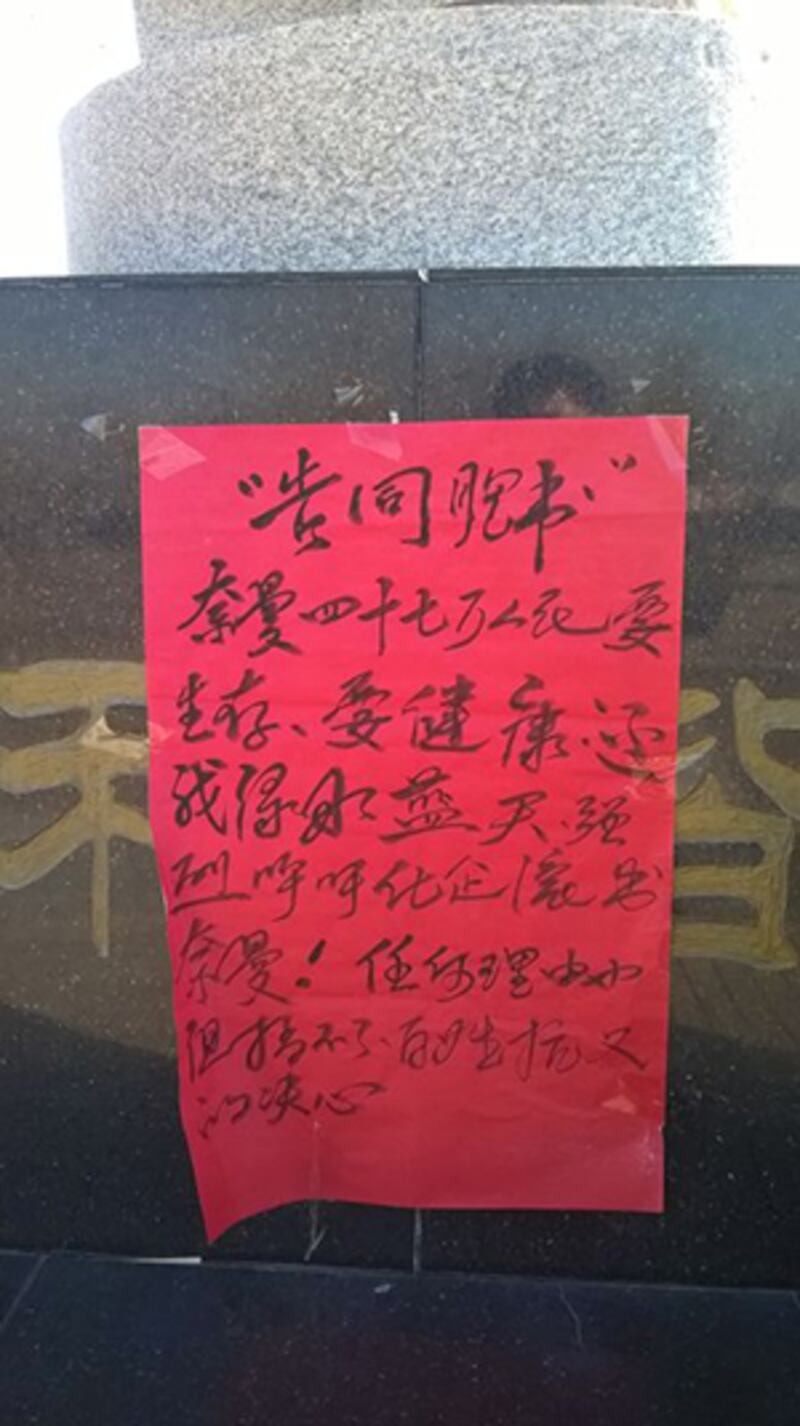 "告同胞书"
奈曼四十七万人民要
生存、要健康.还
我绿水蓝天.强
烈呼吁化企滚出
奈曼!任何理由也
阻挡不了.百姓抗议
的决心
和
谐